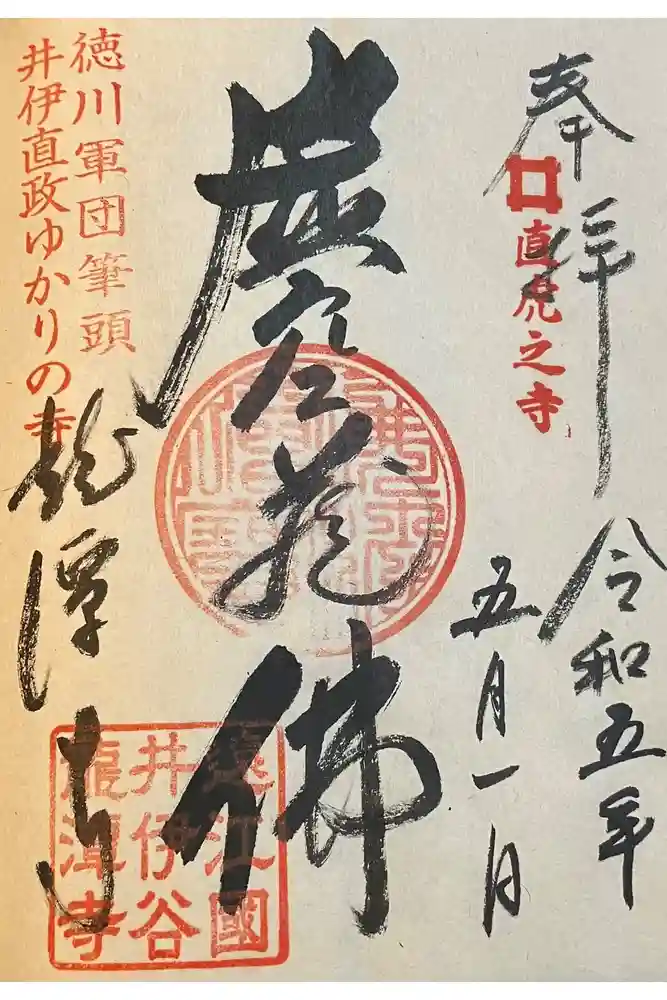 奉拝
直虎之寺
令和五年
五月一日
虚空蔵佛
徳川軍団筆頭
井伊直政ゆかりの寺
龍潭寺
遠江國
井伊谷
龍潭寺